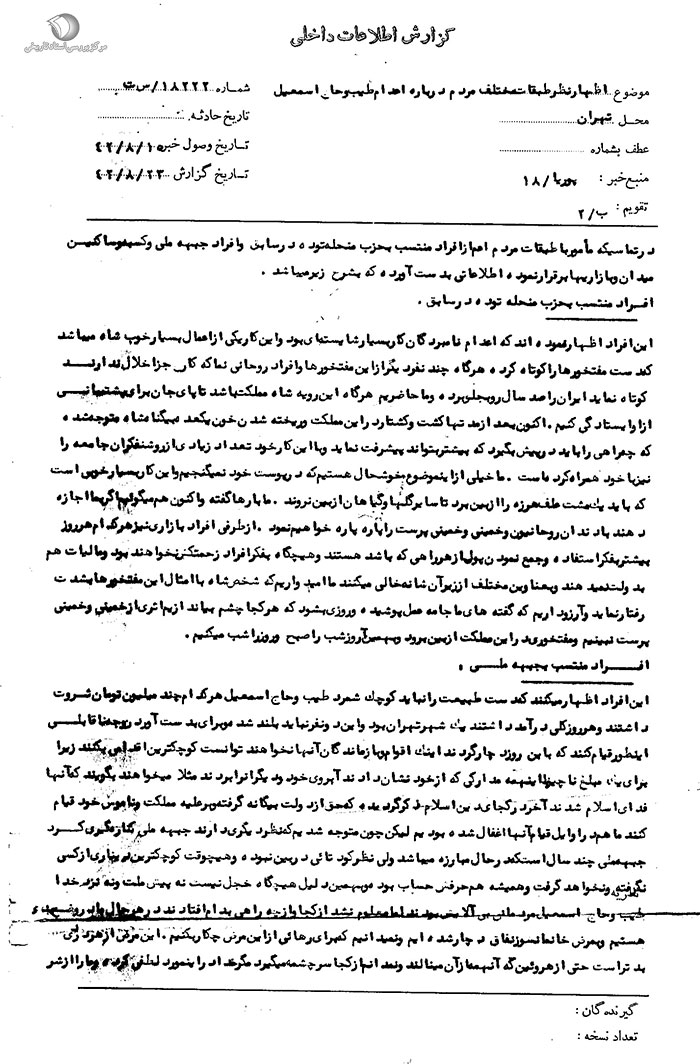 مرکز بررسی اسناد تاریخی
گزارش اطلاعات داخلی
موضوع اظهار نظر طبقات مختلف مردم درباره اعدام طیب و حاج اسمعیل
شماره ۱۸۲۲۲/س ت
محل تهران
تاریخ حادثه
عطف بشماره
تاریخ وصول خبر ۴۲/۸/۱۰
منبع خبر : پوریا/۱۸
تاریخ گزارش ۴۲/۸/۲۳
تقویم : ب/۲
در تماسیکه مأمور با طبقات مردم اعم از افراد منتسب بحزب منحله توده در سابق و افراد جبهه ملی و کسبه و ساکنین
میدان و بازاریها برقرار نموده اطلاعاتی بدست آورده که بشرح زیر میباشد .
افراد منتسب بحزب منحله توده در سابق .
این افراد اظهار نموده اند که اعدام نامبردگان کار بسیار شایسته ای بود و این کار یکی از اعمال بسیار خوب شاه میباشد
که دست مفتخورها را کوتاه کرده هر گاه چند نفر دیگر از این مفتخورها و افراد روحانی نما که کاری جز اخلال ندارند
کوتاه نماید ایران را صد سال رو بجلو برده و ما حاضریم هر گاه این رویه شاه مملکت باشد تا پای جان برای پشتیبانی
از او ایستادگی کنیم . اکنون بعد از مدتها کشت و کشتار در این مملکت و ریخته شدن خون یکعده بیگناه شاه متوجه شده
که چه راهی را باید در پیش بگیرد که بیشتر بتواند پیشرفت نماید و با این کار خود تعداد زیادی از روشنفکران جامعه را
نیز با خود همراه کرده است . ما خیلی از این موضوع خوشحال هستیم که در پوست خود نمیگنجیم و این کار بسیار خوبی است
که باید یکمشت علف هرزه را از بین برد تا سایر گلها و گیاهان از بین نروند . ما بارها گفته و اکنون هم میگوئیم اگر بما اجازه
دهند باندان روحانیون و خمینی و خمینی پرست را پاره پاره خواهیم نمود . از طرفی افراد بازاری نیز هر کدام هر روز
بیشتر بفکر استفاده و جمع نمودن پول از هر راهی که باشد هستند و هیچگاه بفکر افراد زحمتکش نخواهند بود و مالیات هم
بدولت نمیدهند و بعناوین مختلف از زیر آن شانه خالی میکنند ما امیدواریم که شخص شاه با امثال این مفتخورها بشدت
رفتار نماید و آرزو داریم که گفته های ما جامه عمل پوشیده و روزی بشود که هر کجا چشم بیاندازیم اثری از خمینی و خمینی
پرست نبینیم و مفتخوری در این مملکت از بین برود و بهمین آرزو شب را صبح و روز را شب میکنیم .
افراد منتسب بجبهه ملی .
این افراد اظهار میکنند که دست طبیعت را نباید کوچک شمرد طیب و حاج اسمعیل هر کدام چند میلیون تومان ثروت
داشتند و هر روز کلی درآمد داشتند یک شهر تهران بود و این دو نفر نباید بلند شده و برای بدست آوردن وجه ناقابلی
اینطور قیام کنند که باین روز دچار گردند اینک اقوام و بازماندگان آنها نخواهند توانست کوچکترین اقدامی بکنند زیرا
برای یک مبلغ ناچیز با اینهمه مدارکی که از خود نشان دادند آبروی خود و دیگران را بردند مثلا میخواهند بگویند که آنها
فدای اسلام شدند آخر در کجای دین اسلام ذکر گردیده که حق از دولت بیگانه گرفته و بر علیه مملکت و ناموس خود قیام
کنند ما هم در اوایل قیام آنها اغفال شده بودیم لیکن چون متوجه شدیم که نظر دیگری دارند جبهه ملی کناره گیری کرد
جبهه ملی چند سال است که در حال مبارزه میباشد ولی نظر کودتائی در بین نبوده و هیچوقت کوچکترین دیناری از کسی
نگرفته و نخواهد گرفت و همیشه هم حرفش حساب بود و بهمین دلیل هیچگاه خجل نیست نه پیش ملت و نه نزد خدا
طیب و حاج اسمعیل مردمان بی آلایشی بودند اما معلوم نشد از کجا و از چه راهی بدام افتادند در هر حال
هستیم و بمرض خانمانسوز نفاق دچار شده ایم و نمیدانیم که برای رهائی از این مرض چکار بکنیم . این مرض از هر دردی
بدتر است حتی از هروئین که آنهمه از آن مینالند و نمیدانم از کجا سرچشمه میگیرد مگر خداوند در اینمورد لطفی کرده و ما را از شر
گیرندگان :
تعداد نسخه :